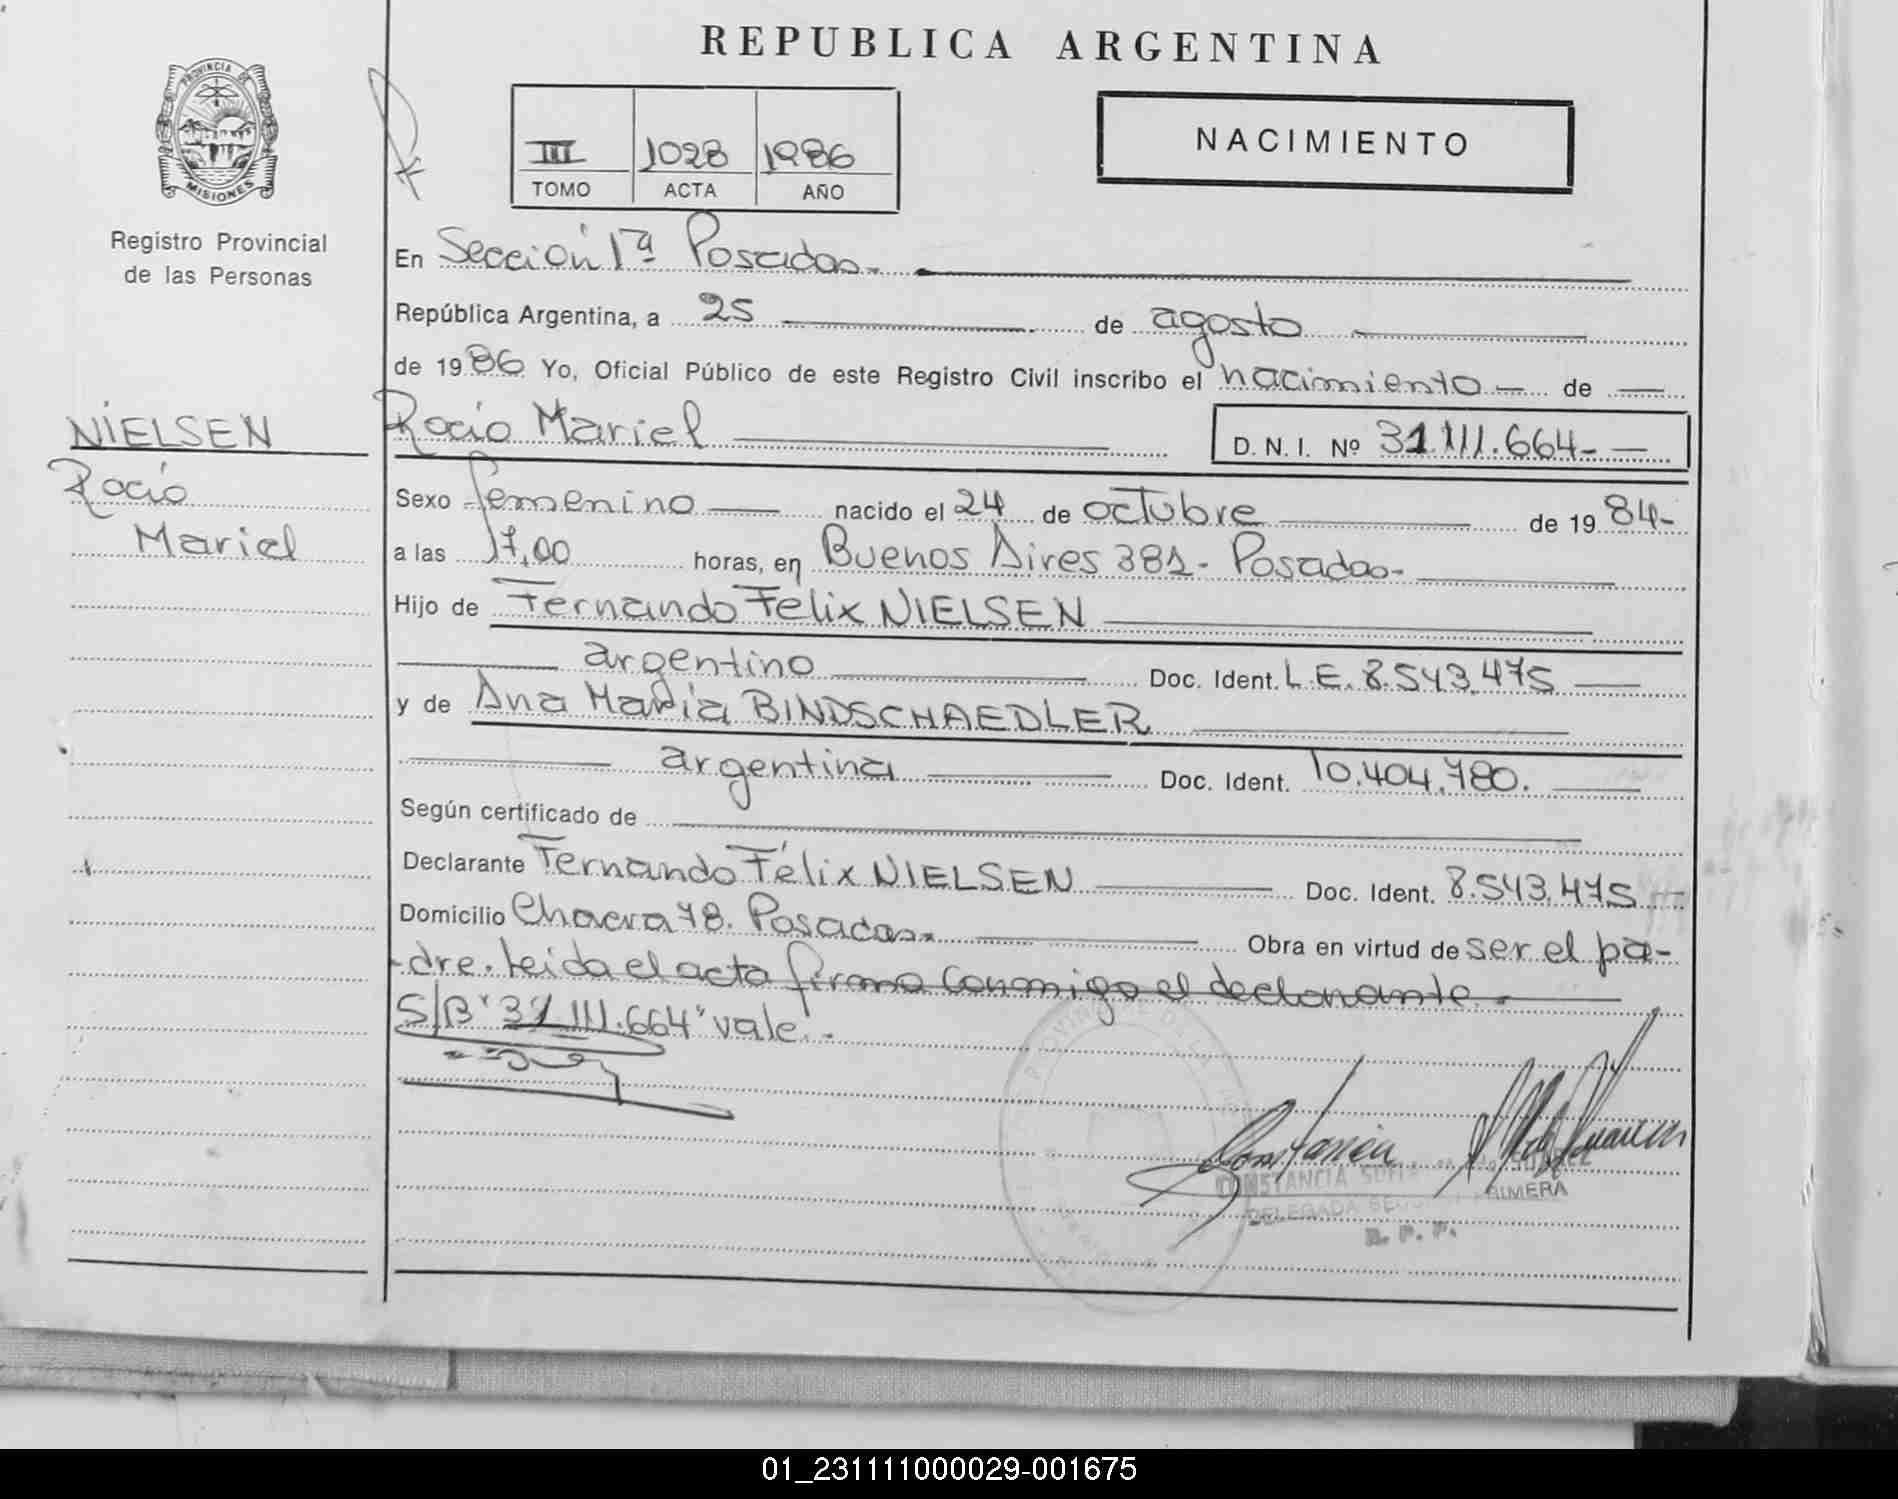 REPUBLICA ARGENTINA
PROVINCIA DE
MISIONES
Registro Provincial
de las Personas
III 1028 1986
TOMO ACTA AÑO
NACIMIENTO
En Sección 1ª Posadas.
República Argentina, a 25 de agosto
de 1986 Yo, Oficial Público de este Registro Civil inscribo el nacimiento de
NIELSEN
Rocío
Mariel
Rocío Mariel D. N. I. Nº 31.111.664-
Sexo femenino nacido el 24 de octubre de 1984-
a las 17,00 horas, en Buenos Aires 381- Posadas-
Hijo de Fernando Felix NIELSEN
argentino Doc. Ident. L.E. 8.543.475
y de Ana María BINDSCHAEDLER
argentina Doc. Ident. 10.404.780.
Según certificado de
Declarante Fernando Félix NIELSEN Doc. Ident. 8.543.475
Domicilio Chacra 78. Posadas. Obra en virtud de ser el pa-
dre. Leida el acta firma conmigo el declarante.-
S/B "31.111.664" vale.-
CONSTANCIA
DELEGADA SECCION PRIMERA
R. P. P.
01_231111000029-001675